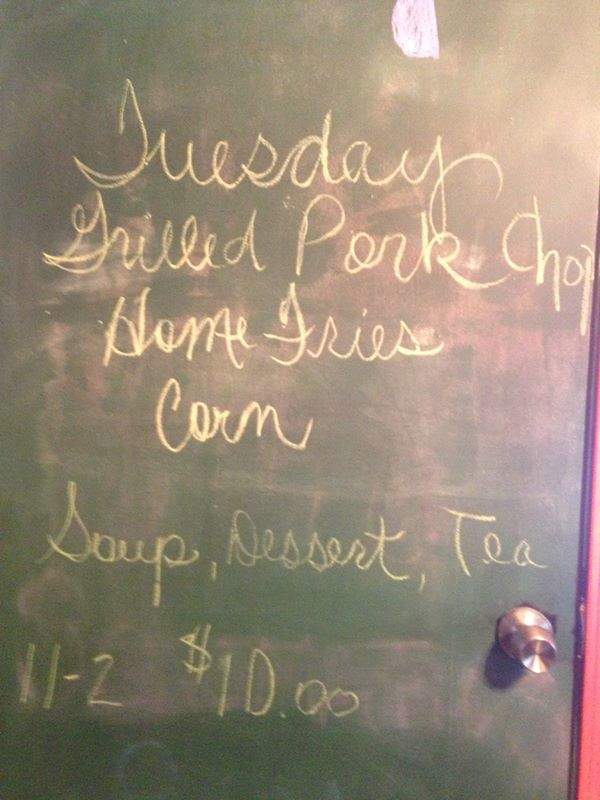 Tuesday
Grilled Pork Chop
Home Fries
Corn
Soup, Dessert, Tea
11-2 $10.00